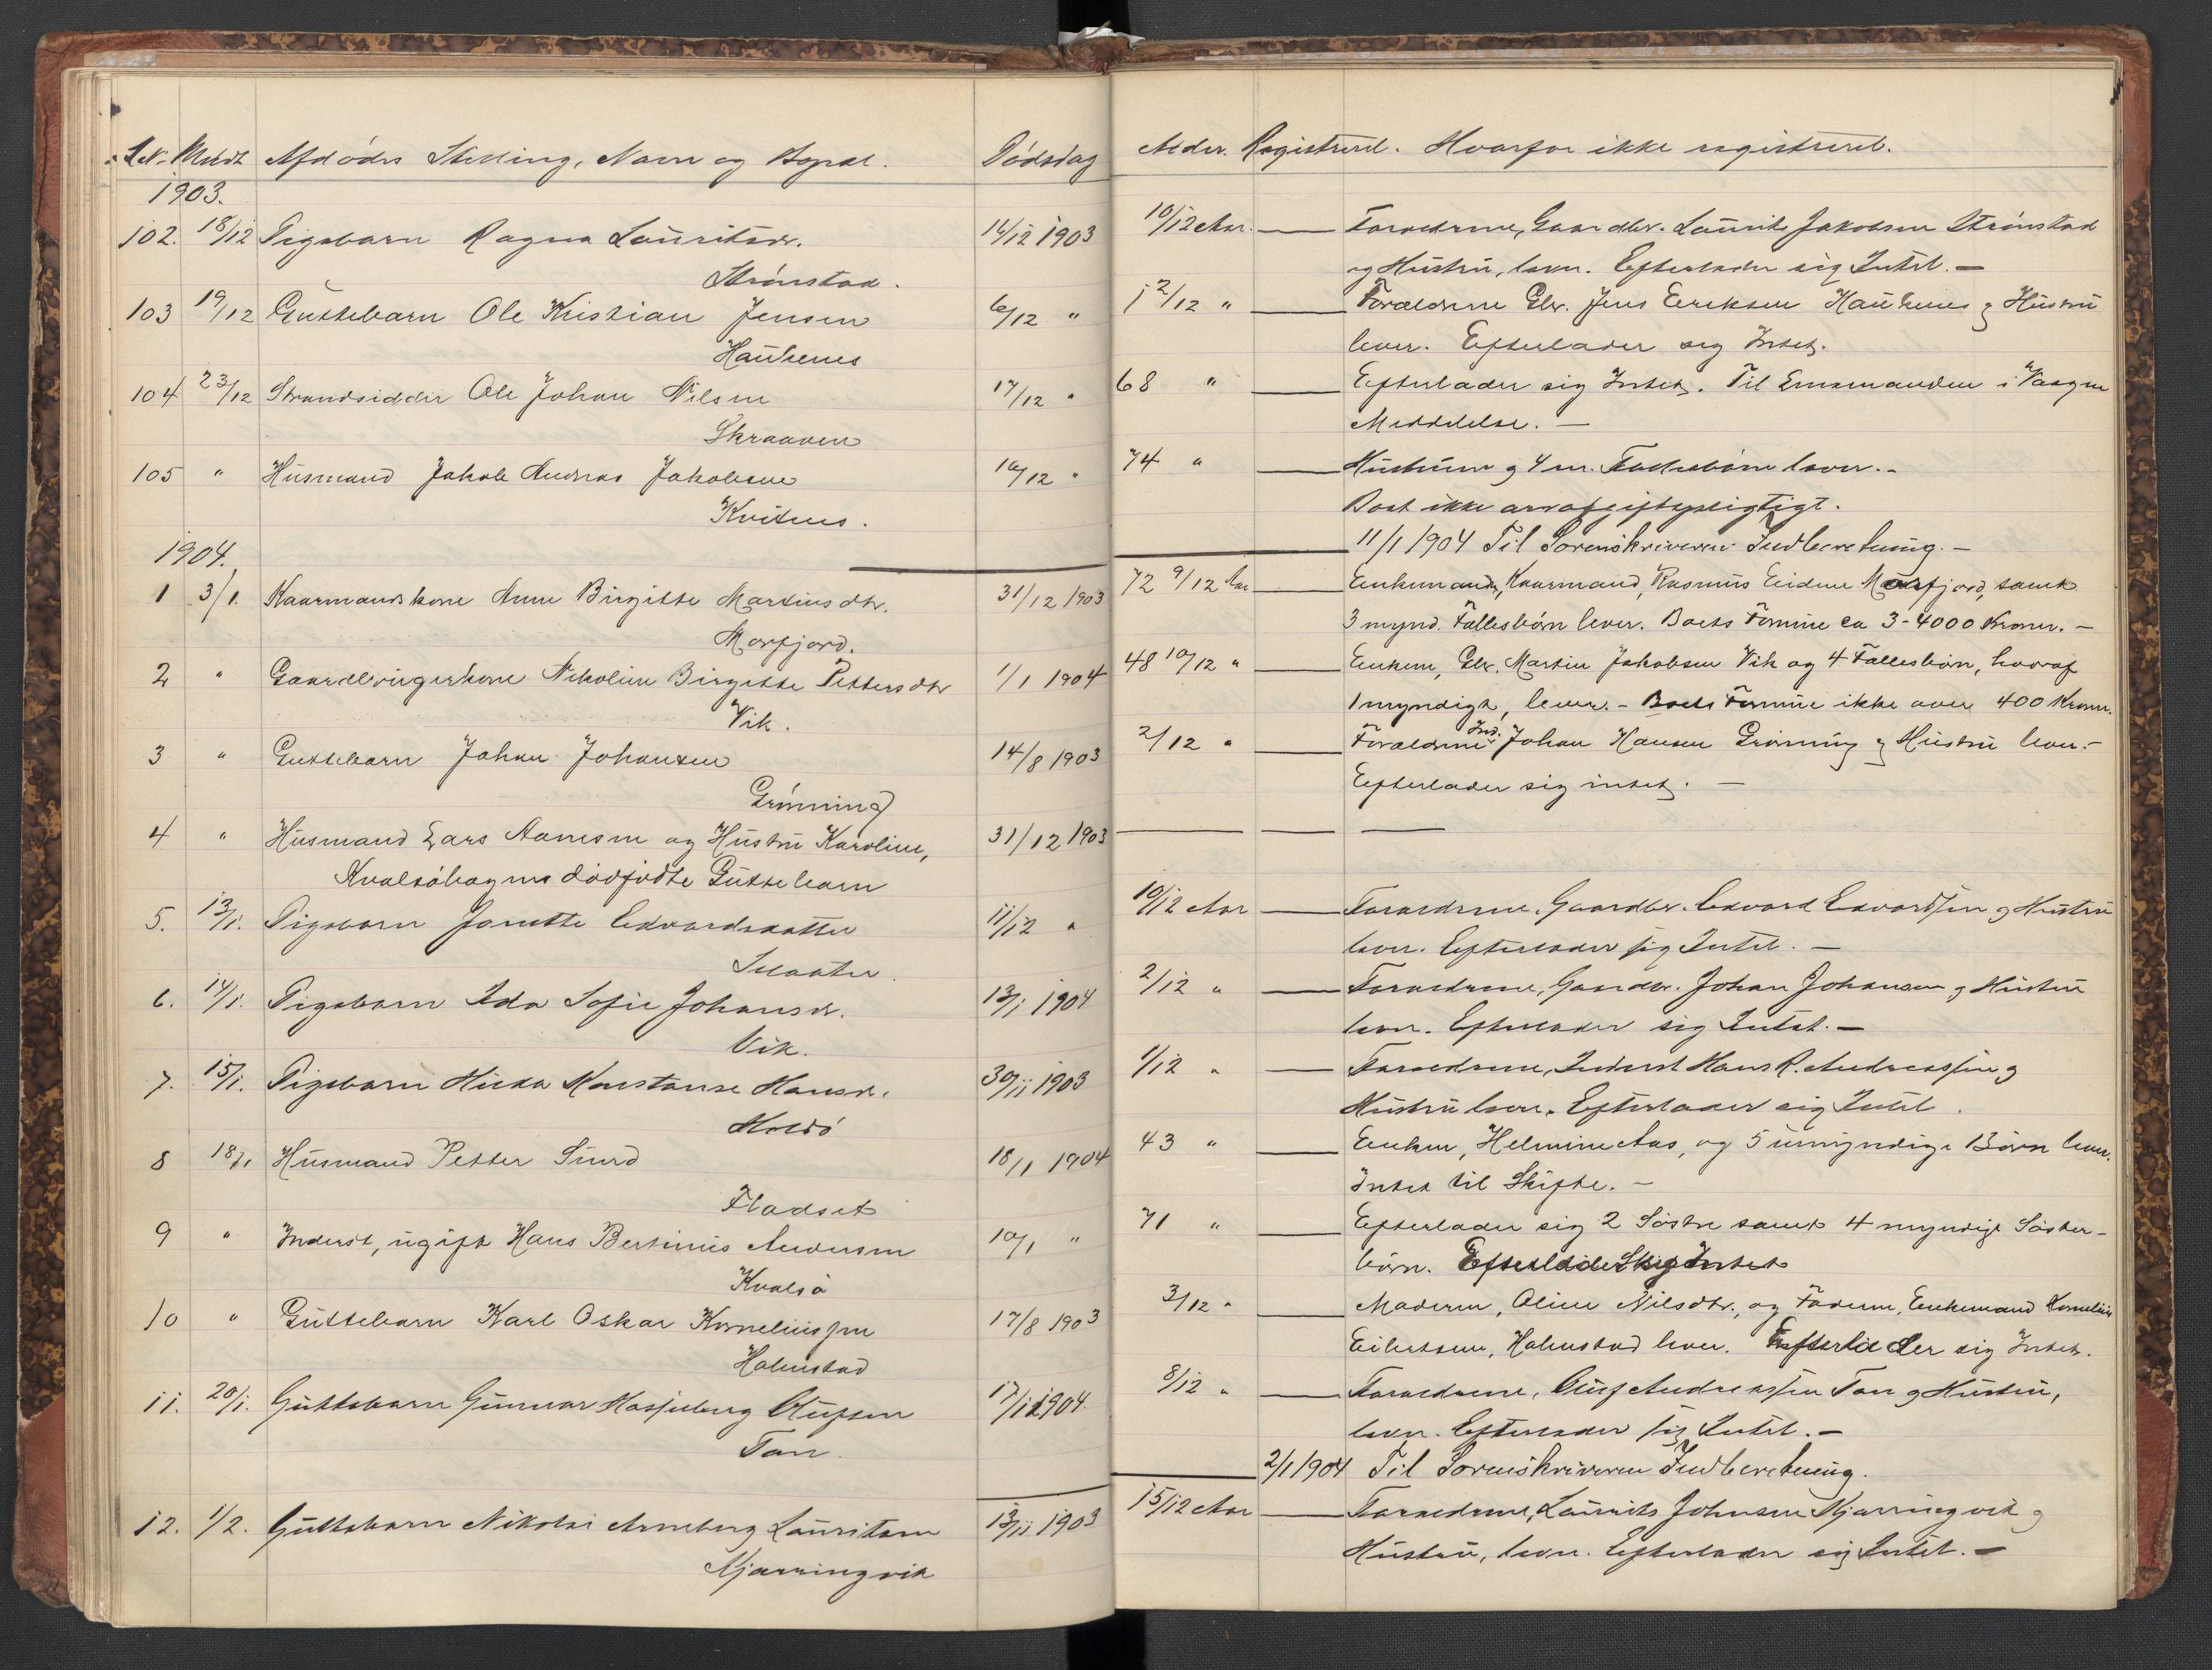 L.N. Meldt Afdødes Stilling, Navn og Bopæl. Dødsdag
1903.
102. 18/12 Pigebarn Ragna Lauritsdr. 14/12 1903
Strønstad.
103 19/12 Guttebarn Ole Kristian Jensen 6/12 "
Haukenes
104 23/12 Strandsidder Ole Johan Nilsen 17/12 "
Skraaven
105 " Husmand Jakob Andreas Jakobsen 10/12 "
Kvitnes.
1904.
1 3/1. Kaarmandskone Anne Birgitte Martinusdtr. 31/12 1903
Morfjord.
2 " Gaardbrugerkone Nikoline Birgitte Pettersdtr 1/1 1904
Vik.
3 " Guttebarn Johan Johansen 14/8 1903
Grønning
4 " Husmand Lars Aanesen og Hustru Karoline, 31/12 1903
Kvalsøhagens dødfødte Guttebarn
5. 13/1. Pigebarn Janette Edvardsdatter 11/12 "
6. 14/1. Pigebarn Ida Sofie Johansdr. 13/1 1904
Vik.
7. 15/1. Pigebarn Hilda Konstanse Hansdr. 30/11 1903
Holdø
8 18/1 Husmand Petter Sund 18/1 1904
Fladset
9 " Inderst, ugift Hans Bertinius Andersen 10/1 "
Kvalsø
10 " Guttebarn Karl Oskar Korneliussen 17/8 1903
Holmstad
11. 20/1. Guttebarn Gunnar Hasselberg Olufsen 17/1 1904.
Tan.
12. 1/2. Guttebarn Nikolai Arneberg Lauritsen 13/11 1903
Kjærringvik
Alder. Registreret. Hvorfor ikke registreret.
10/12 Aar. — Forældrene, Gaardbr. Laurits Jakobsen Strønstad
og Hustru, lever. Efterlader sig Intet. —
12/12 " — Forældrene Gbr. Jens Eriksen Haukenes og Hustru
lever. Efterlader sig Intet.
68 " — Efterlader sig Intet. Til Lensmanden i Vaagan
Meddelelse. —
74 " — Hustruen og 4 m. Fællesbørn lever. -
Boet ikke arveafgiftspligtigt.
11/1 1904 Til Sorenskriveren Indberetning. —
72 9/12 Aar — Enkemanden, Kaarmand, Rasmus Eidene Morfjord, samt
3 mynd. Fællesbørn lever. Boets Formue ca 3-4000 Kroner. —
48 10/12 " — Enkem, Gbr. Martin Jakobsen Vik og 4 Fællesbørn, hvoraf
1 myndigt, lever. - Boets Formue ikke over 400 Kroner.
2/12 " — Forældrene Ind. Johan Hansen Grønning og Hustru lever. -
Efterlader sig intet. —
— — —
10/12 Aar — Forældrene, Gaardbr. Edvard Edvardsen og Hustru
lever. Efterlader sig Intet. —
2/12 " — Forældrene, Gaardbr. Johan Johansen og Hustru
lever. Efterlader sig Intet. —
1/12 " — Forældrene, Inderst Hans R. Andreassen og
Hustru lever. Efterlader sig Intet.
43 " — Enken, Helmine Aas, og 5 umyndige Børn lever.
Intet til Skifte. —
71 " — Efterlader sig 2 Søstre samt 4 myndige Søster-
børn. Efterlader sig Intet
3/12 " — Moderen, Oline Nilsdtr, og Faderen, Enkemand Kornelius
Eilertsen, Holmstad lever. Efterlader sig Intet.
8/12 " — Forældrene, Oluf Andreassen Tan og Hustru,
lever. Efterlader sig Intet. —
2/1 1904 Til Sorenskriveren Indberetning.
15/12 Aar — Forældrene, Laurits Johnsen Kjærringvik og
Hustru, lever. Efterlader sig Intet. —